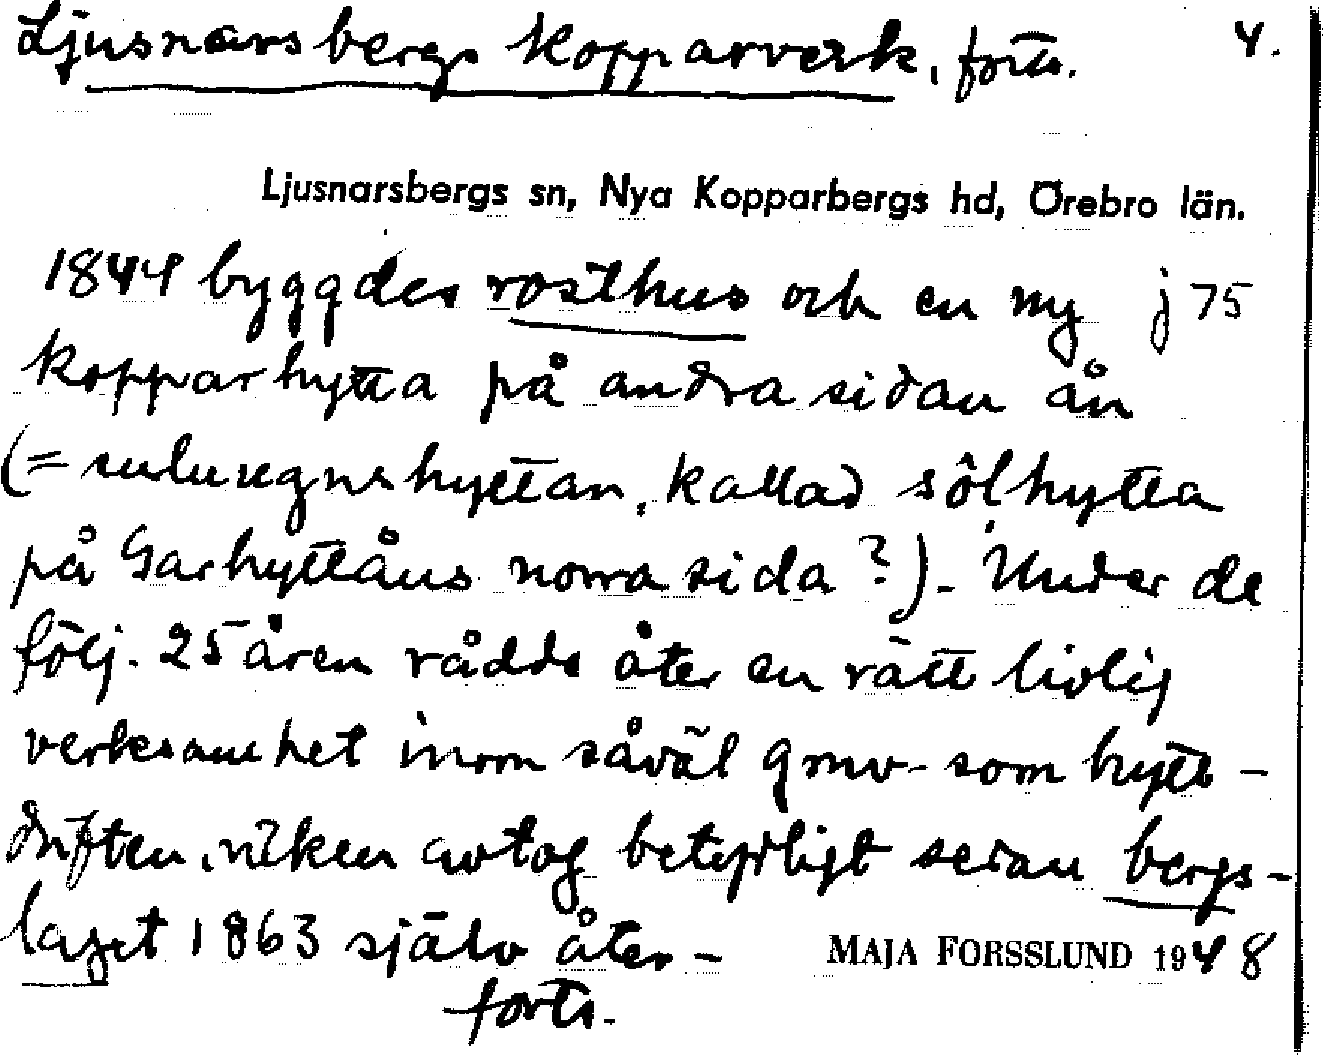 Ljusnarsbergs Kopparverk, forts. 4.
Ljusnarsbergs sn, Nya Kopparbergs hd, Örebro län.
1844 byggdes rosthus och en ny j 75
kopparhytta på andra sidan ån
(= suluugnshyttan, kallad sôlhytta
på Garhytteåns norra sida?). Under de
följ. 25 åren rådde åter en rätt livlig
verksamhet inom såväl gruv- som hytt-
driften, vilken avtog betydligt sedan bergs-
laget 1863 själv åter-
forts.
MAJA FORSSLUND 1948